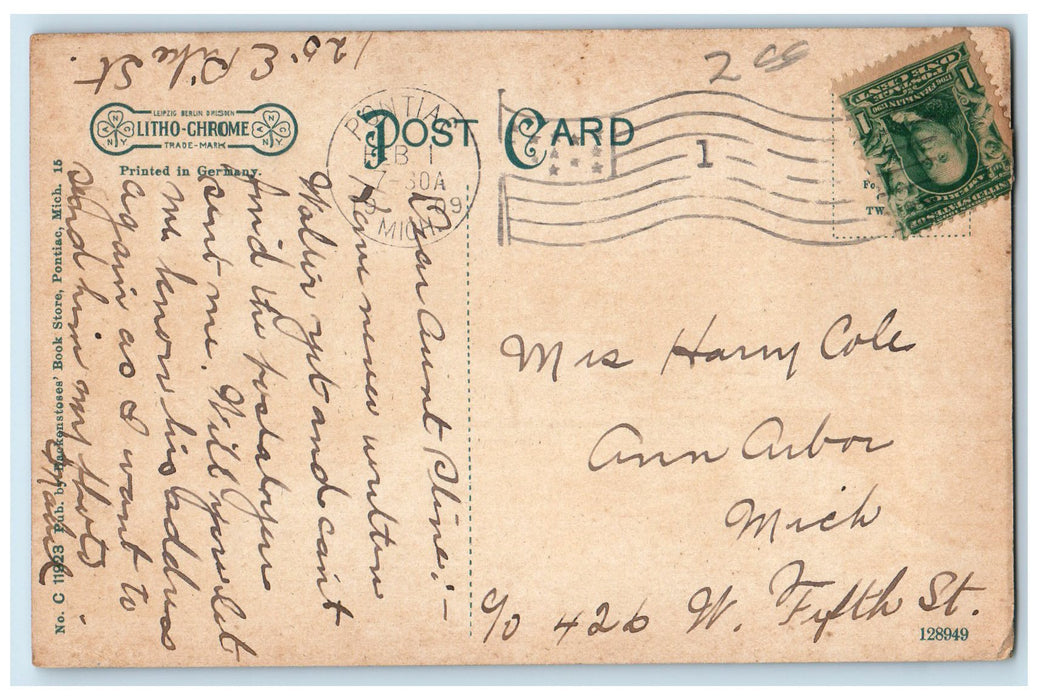 120 E Pike St.
2 cs
LEIPZIG BERLIN DRESDEN
LITHO-CHROME
TRADE-MARK
Printed in Germany.
POST CARD
PONTIAC
FEB 1
7-30A
1909
MICH.
1
ONE CENT
FRANKLIN
1
1
Fo
TW
Dear Aunt Pline:-
Have never written
Walter yet and can't
find the postal you
sent me. Will you let
me know his address
again as I want to
send him my photo
Mabel
No. C 11923 Pub. by Hackenstoses' Book Store, Pontiac, Mich. 15
Mrs Harry Cole
Ann Arbor
Mich
c/o 426 W. Fifth St.
128949